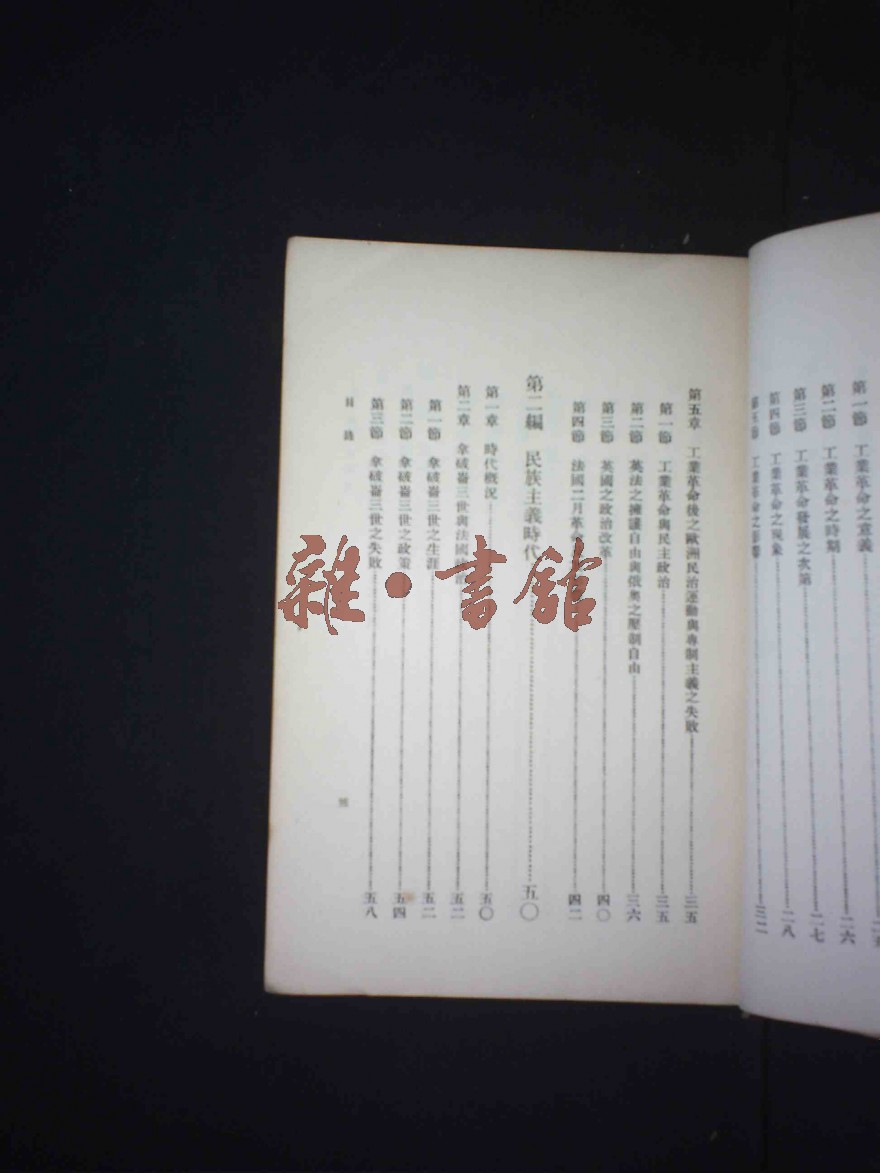 第一節 工業革命之意義
第二節 工業革命之時期 二六
第三節 工業革命發展之次第 二七
第四節 工業革命之現象 二八
第五節 工業革命之影響 三二
第五章 工業革命後之歐洲民治運動與專制主義之失敗 三五
第一節 工業革命與民主政治 三五
第二節 英法之擁護自由與俄奧之壓制自由 三六
第三節 英國之政治改革 四〇
第四節 法國二月革 四二
第二編 民族主義時代 五〇
第一章 時代概況 五〇
第二章 拿破崙三世與法國 五二
第一節 拿破崙三世之生涯 五二
第二節 拿破崙三世之政策 五四
第三節 拿破崙三世之失敗 五八
目錄
雜·書館